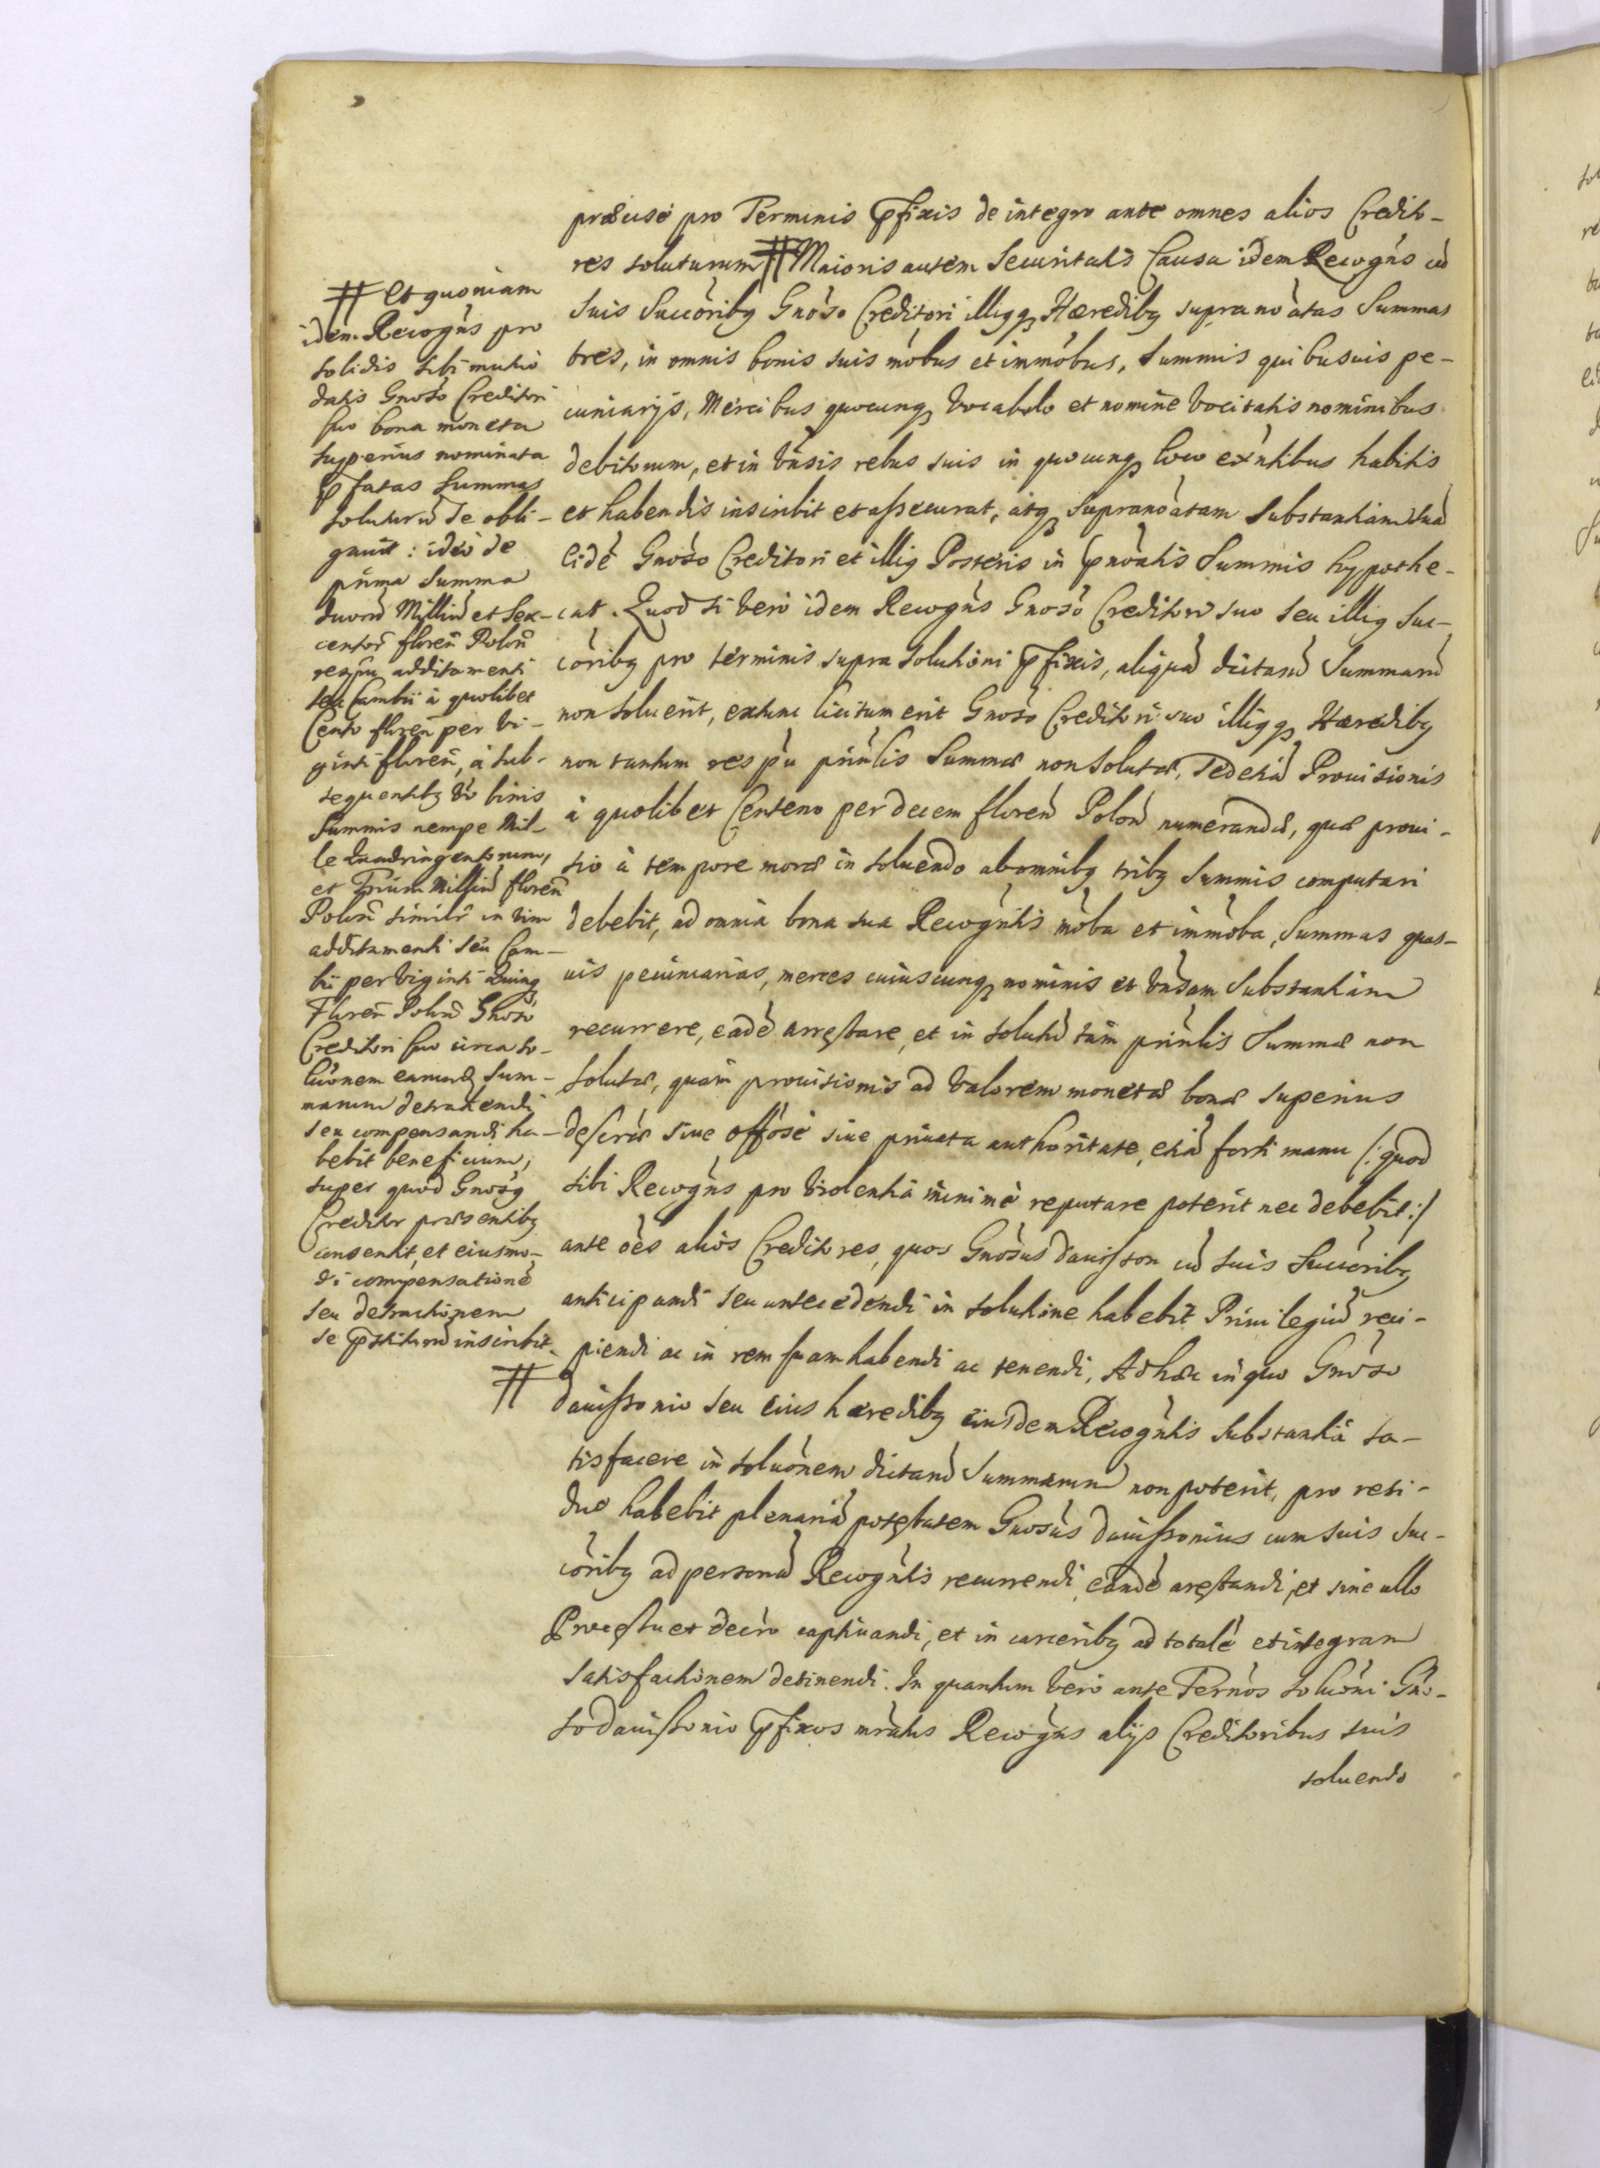 præcisè pro Terminis p̄fixis de integro ante omnes alios Credito-
res soluturum # Maioris autem Securitatis Causa idem Recogn̄s cū
suis Succōribg Gnōso Creditori illigq Hæredibg supranōātas Summas
tres, in omnis bonis suis mōbus et immōbus, Summis quibusuis pe-
cuniarijs, Mercibus quocunq Vocabulo et nomine Vocitatis nominibus
debitorum, et in Vn̄sis rebus suis in quocunq loco exn̄tibus habitis
et habendis inscribit et assecurat, atq supranōātam Substantiam suā
eidē Gnōso Creditori et illig Posteris in p̄nōātis Summis hypothe-
cat. Quod si Vero idem Recogn̄s Gnōso Creditori suo seu illig Suc-
cōribg pro terminis supra solutioni p̄fixis, aliquā dictarū Summarū
non soluerit, extunc licitum erit Gnōso Creditori suo illigq Hæredibg
non tantum respū prin̄lis Summæ non solutæ, sed etiā Prouisionis
à quolibet Centeno per decem floren̄ Polon̄ numerandæ, quæ proui-
sio à tempore moræ in soluendo ab omnibg tribg Summis computari
debebit, ad omnia bona sua Recogn̄tis mōba et immōba, Summas quas-
uis pecuniarias, merces cuiuscunq nominis et Vn̄sam Substantiam
recurrere, eadē arrestare, et in solutū tam prin̄lis Summæ non
solutæ, quam prouisionis ad Valorem monetæ bonæ superius
descrāē siue offōsè siue priuata authoritate, etiā forti manu /: quod
sibi Recogn̄s pro Violentia minimè reputare poterit nec debebit :/
ante oēs alios Creditores, quos Gnōsus Dauisson cū suis Succōribg
anticipandi seu antecedendi in solutione habebit Priuilegiū reci-
piendi ac in rem suam habendi ac tenendi, Ad hæc in quo Gnōso
Dauissonio seu eius hæredibg eiusdem Recogn̄tis Substantia sa-
tisfacere in soluōnem dictarū Summarum non poterit, pro resi-
duo habebit plenariā potestatem Gnōsus Dauissonius cum suis Suc-
cōribg ad personā Recogn̄tis recurrendi, eandē arestandi, et sine ullo
Processu et decrō captiuandi, et in carceribg ad totalē et integram
satisfactionem detinendi. In quantum Vero ante Termōs soluōni Gnō-
so Dauissonio p̄fixos mrātus Recogn̄s alijs Creditoribus suis
soluendo
# Et quoniam
idem Recogn̄s pro
solidis sibi mutuo
datis Gnōso Creditori
suo bona moneta
superius nominata
p̄fatas Summas
soluturū se obli-
gauit: ideo de
prima Summa
duorū Milliū et Sex-
centor̄ floren̄ Polon̄
respū additamenti
seu Cambii à quolibet
Cento floren̄ per Vi-
ginti floren̄, à sub-
sequentibg Vō binis
Summis nempe Mil-
le Quadringentorum,
et Trium Milliū floren̄
Polon̄ similr̄ in Vim
additamenti seu Cam-
bii per Viginti Quinq
Floren̄ Polon̄ Gnōso
Creditori suo circa so-
luōnem earundē Sum-
marum detrahendi
seu compensandi ha-
bebit beneficium;
super quod Gnōsg
Creditor præsentibg
consentit, et eiusmo-
di compensationē
seu detractionem
se p̄stiturū inscribit.
#